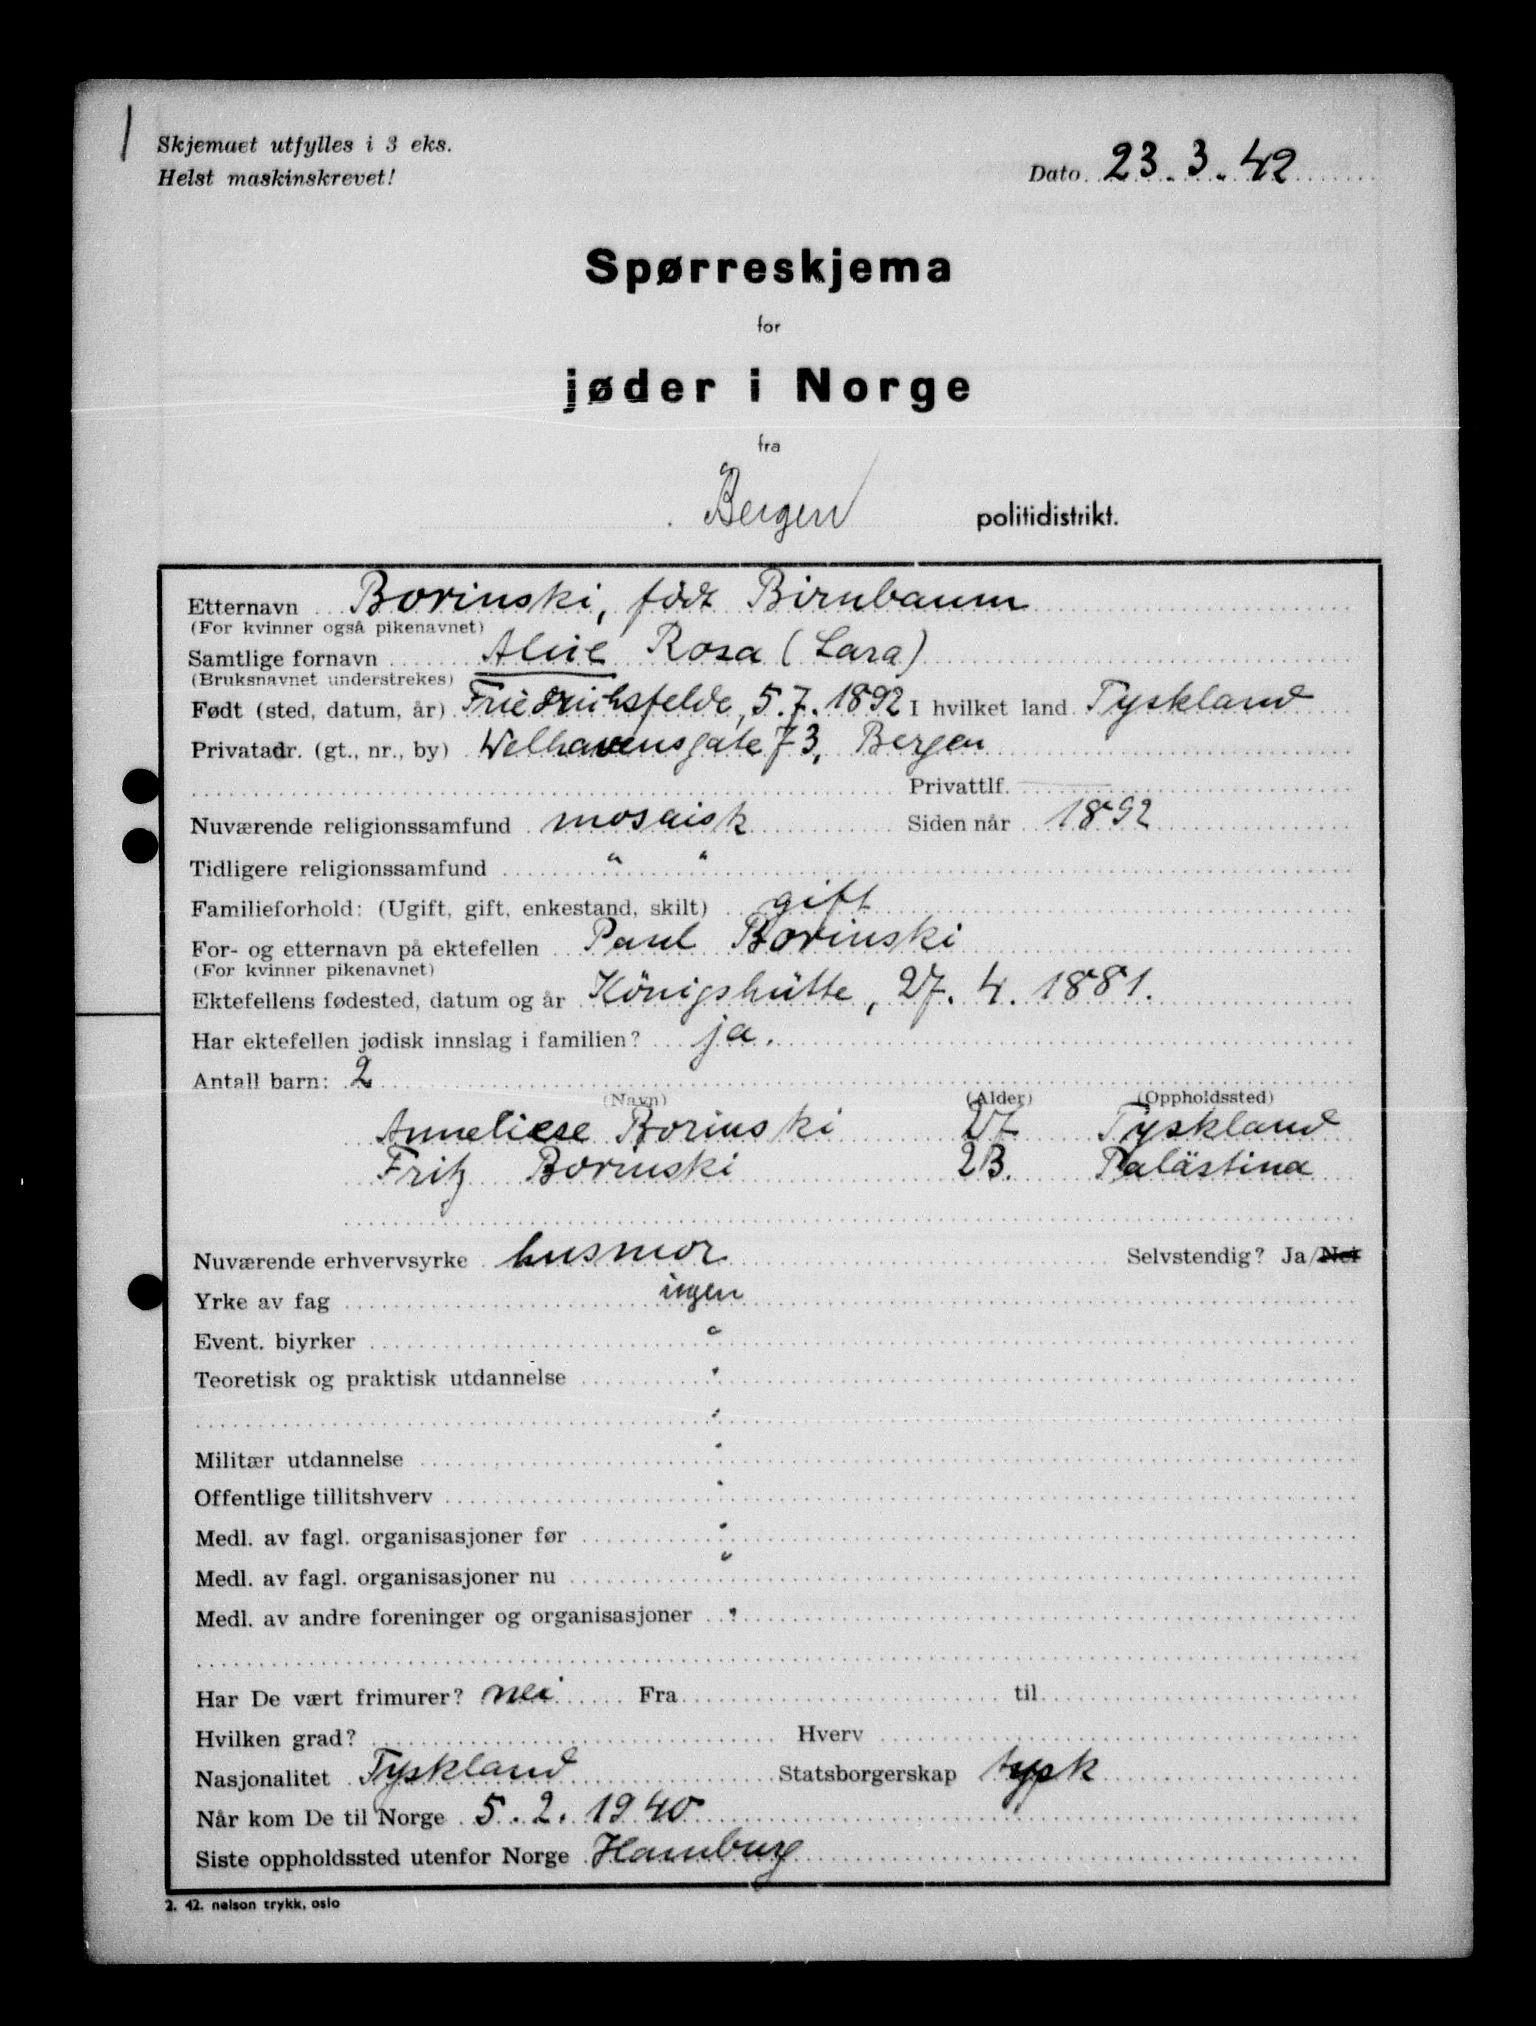 Skjemaet utfylles i 3 eks.
Helst maskinskrevet!
Dato 23.3.42
Spørreskjema
for
jøder i Norge
fra
Bergen politidistrikt.
Etternavn Borinski, född Birnbaum
(For kvinner også pikenavnet)
Samtlige fornavn Alice Rosa (Sara)
(Bruksnavnet understrekes)
Født (sted, datum, år) Friedrichsfelde, 5.7.1892 I hvilket land Tyskland
Privatadr. (gt., nr., by) Welhavensgate 73, Bergen
Privattlf. —
Nuværende religionssamfund mosaisk Siden når 1892
Tidligere religionssamfund " "
Familieforhold: (Ugift, gift, enkestand, skilt) gift
For- og etternavn på ektefellen Paul Borinski
(For kvinner pikenavnet)
Ektefellens fødested, datum og år Königshütte, 27.4.1881.
Har ektefellen jødisk innslag i familien? ja.
Antall barn: 2
(Navn) (Alder) (Oppholdssted)
Anneliese Borinski 27 Tyskland
Fritz Borinski 23. Palästina
Nuværende erhvervsyrke husmor Selvstendig? Ja/Nei
Yrke av fag ingen
Event. biyrker "
Teoretisk og praktisk utdannelse "
"
Militær utdannelse "
Offentlige tillitshverv "
Medl. av fagl. organisasjoner før "
Medl. av fagl. organisasjoner nu "
Medl. av andre foreninger og organisasjoner "
Har De vært frimurer? nei Fra til
Hvilken grad? Hverv
Nasjonalitet Tyskland Statsborgerskap tysk
Når kom De til Norge 5.2.1940
Siste oppholdssted utenfor Norge Hamburg
2. 42. nelson trykk, oslo